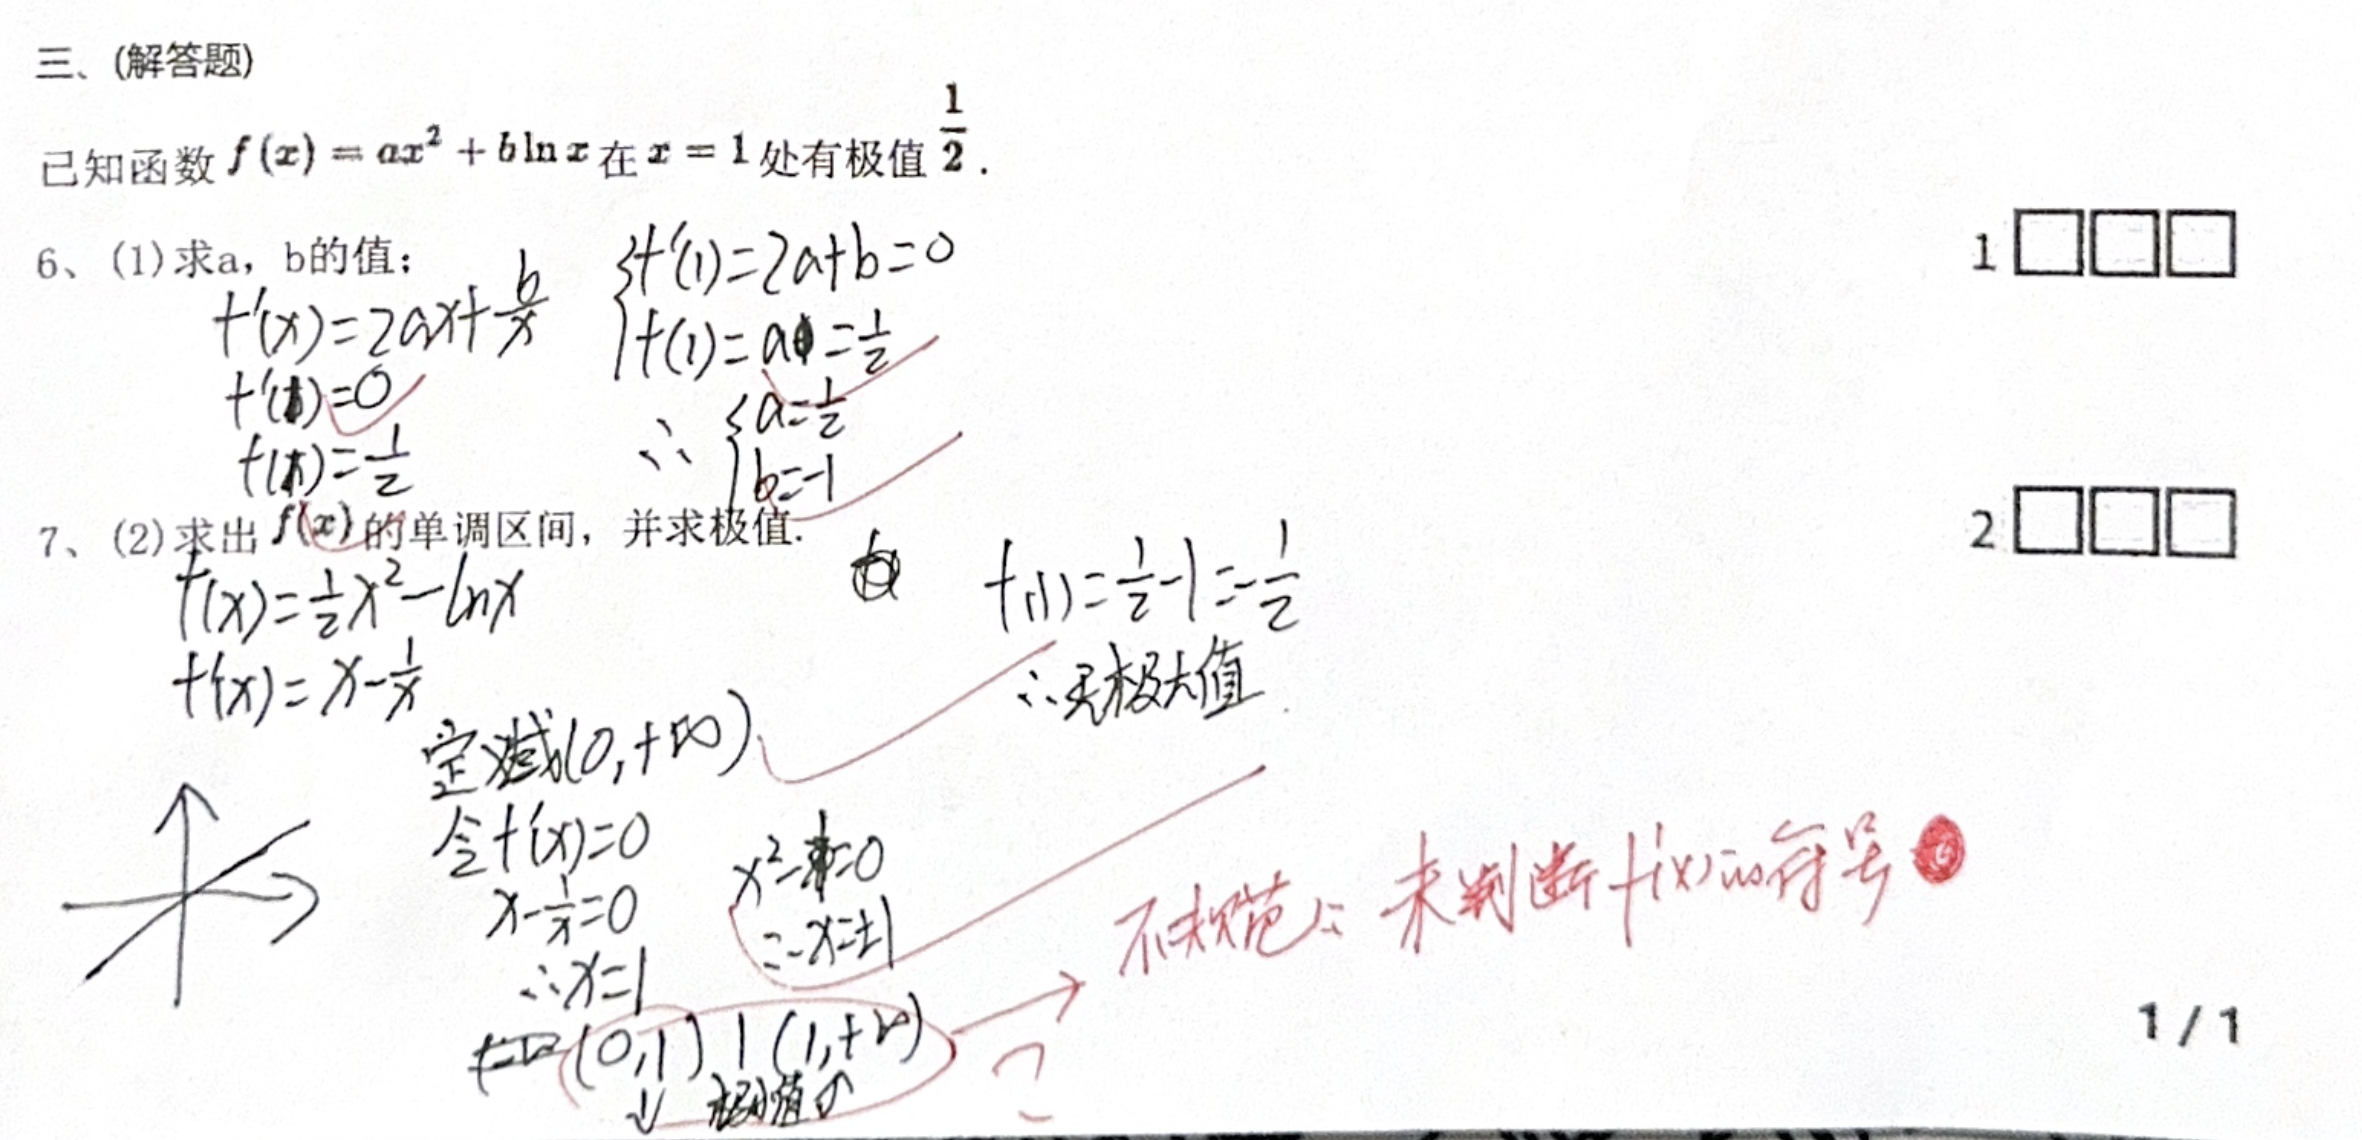 三、(解答题)
已知函数 f(x) = ax² + b ln x 在 x = 1 处有极值 1/2 .
6、(1)求a，b的值;
f'(x)=2ax+b/x
f'(1)=0
f(1)=1/2
{f'(1)=2a+b=0
f(1)=a=1/2
∴ {a=1/2
b=-1
1 □□□
7、(2)求出 f(x) 的单调区间，并求极值.
2 □□□
f(x)=1/2x²-lnx
f'(x)=x-1/x
定域(0,+∞)
令f'(x)=0
x-1/x=0
∴x=1
x²-1=0
∴x=±1
(0,1) 1 (1,+∞)
↓ 极小值 ↑
f(1)=1/2-1=-1/2
∴无极大值
不规范: 未判断f'(x)的符号
1 / 1